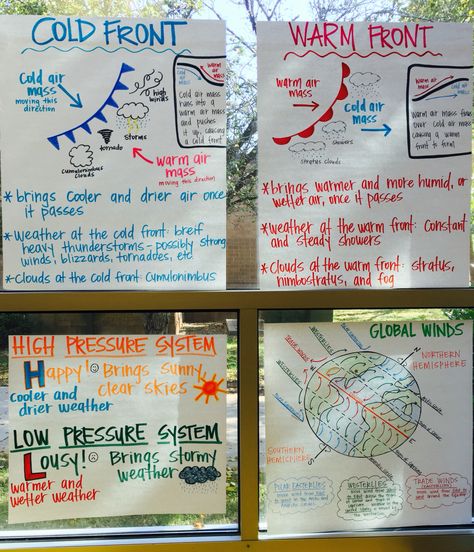 COLD FRONT
Cold air
mass
moving this
direction
high
winds
storms
tornado
cumulonimbus
clouds
warm air
mass
moving this direction
warm air
mass
cold
air
mass
Cold air mass
runs into a
warm air
mass and
pushes
it up, causing
a cold front
*brings cooler and drier air once
it passes
*Weather at the cold front: brief
heavy thunderstorms - possibly strong
winds, blizzards, tornadoes, etc
*Clouds at the cold front: Cumulonimbus
WARM FRONT
warm air
mass
Cold air
mass
showers
stratus clouds
warm air
mass
cold air
mass
warm air
mass thus
over cold air
mass causing
a warm
front to form.
*brings warmer and more humid, or
wetter air, once it passes
*weather at the warm front: Constant
and steady showers
*clouds at the warm front: stratus,
nimbostratus, and fog
HIGH PRESSURE SYSTEM
Happy! Brings sunny
clear skies
cooler and
drier weather
LOW PRESSURE SYSTEM
Lousy! Brings stormy
weather
warmer and
wetter weather
GLOBAL WINDS
NORTHERN
HEMISPHERE
WESTERLIES
TRADE WINDS
WESTERLIES
SOUTHERN
HEMISPHERE
N
S
POLAR EASTERLIES
WESTERLIES
TRADE WINDS
(EASTERLIES)